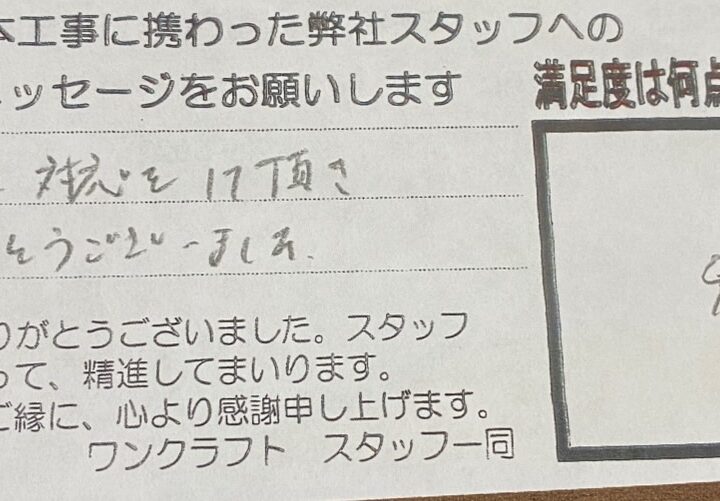 本工事に携わった弊社スタッフへの
メッセージをお願いします
満足度は何点
対応を頂き
とうございました
りがとうございました。スタッフ
って、精進してまいります。
ご縁に、心より感謝申し上げます。
ワンクラフト スタッフ一同